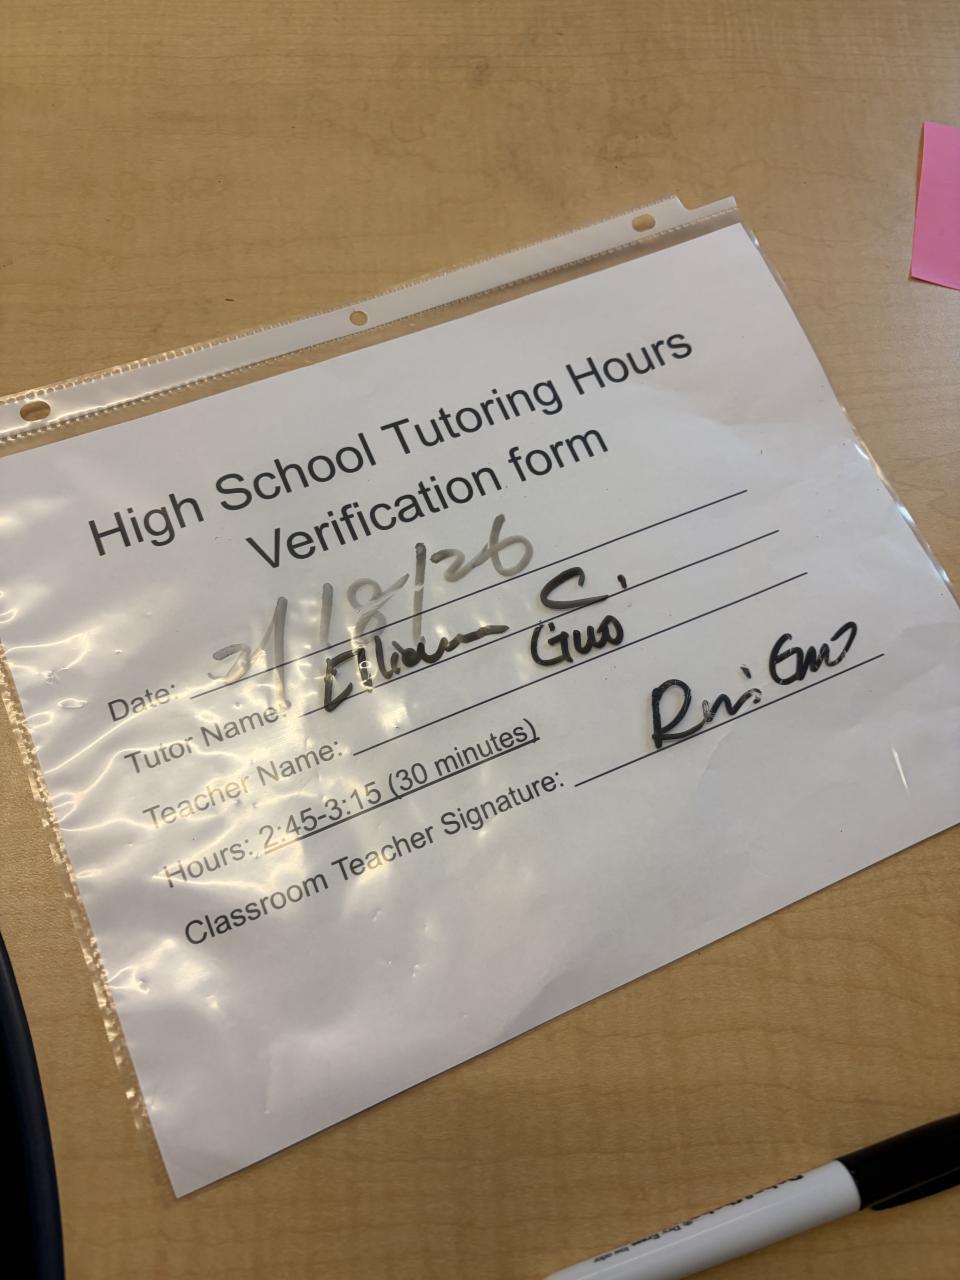 High School Tutoring Hours
Verification form
Date: /26
Tutor Name: C.
Teacher Name: Guo
Hours: 2:45-3:15 (30 minutes)
Classroom Teacher Signature: